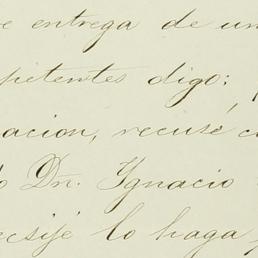 e entrega de un
petentes digo:
acion, recusé c
o Dn. Ygnacio
ecsije lo haga